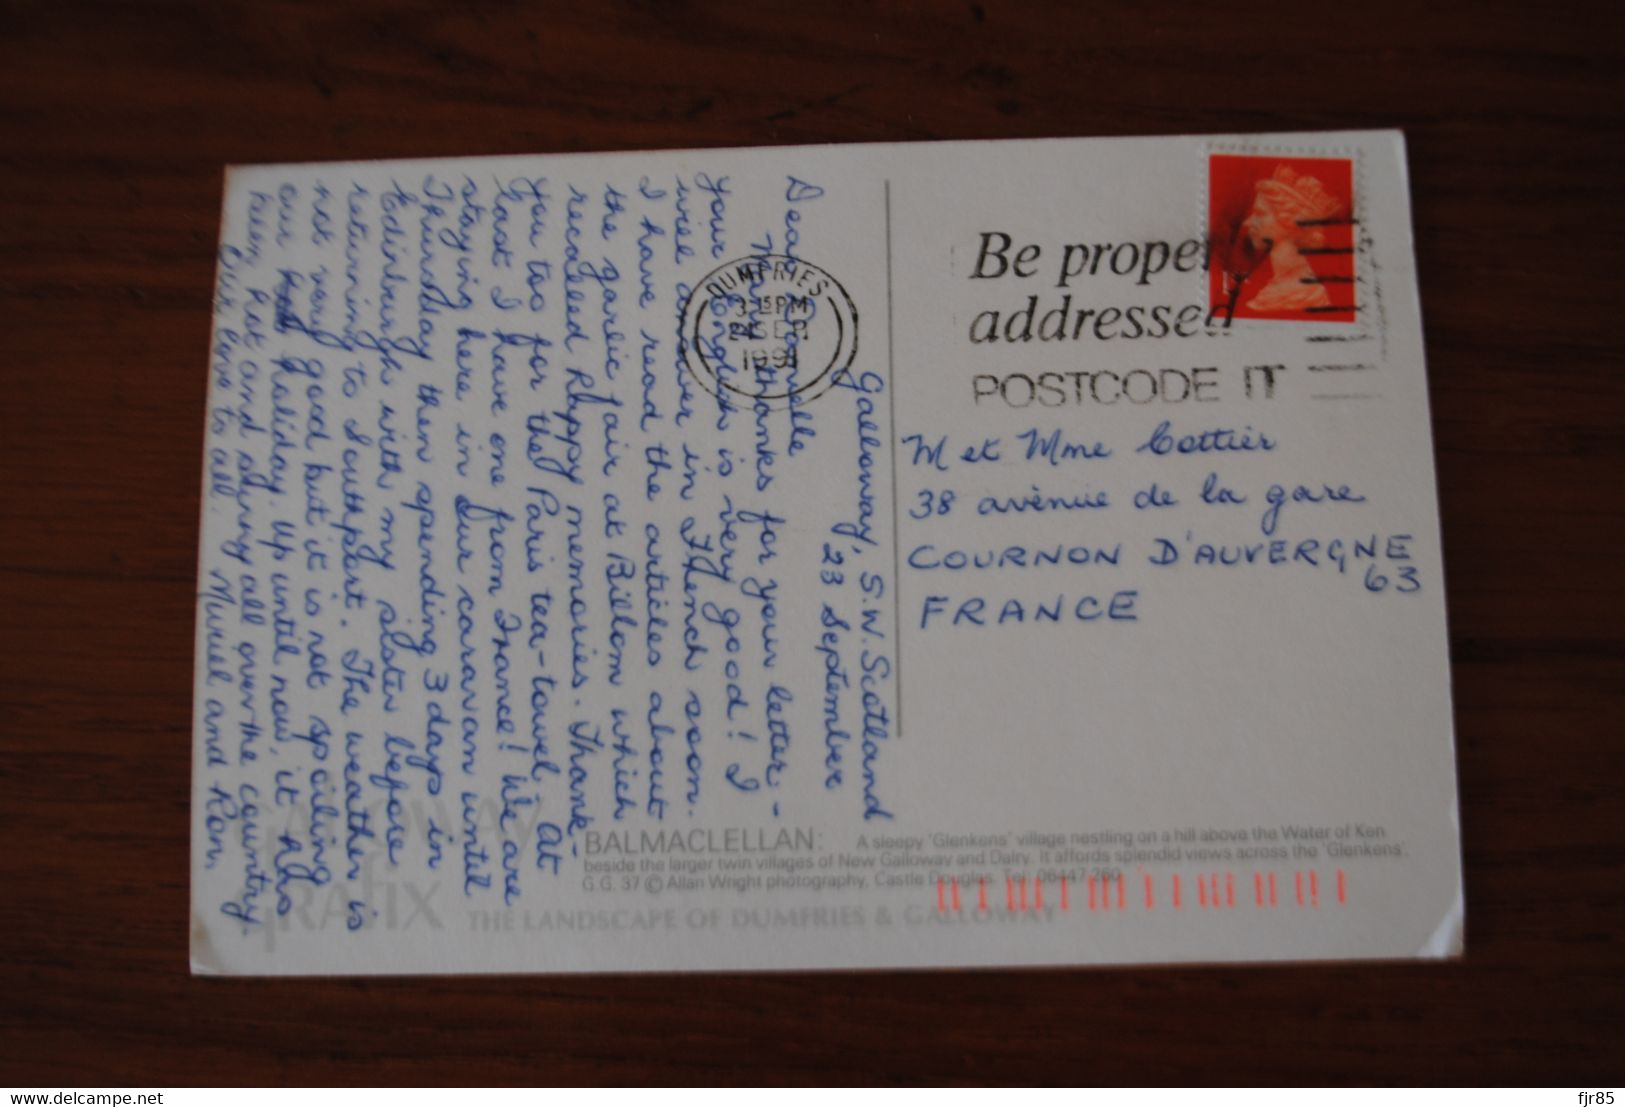 Galloway, S.W. Scotland
23 September
Dear Danielle
Many thanks for your letter -
your English is very good! I
will answer in French soon.
I have read the articles about
the garlic fair at Billom which
recalled happy memories. Thank-
you too for the Paris tea-towel. At
last I have one from France! We are
staying here in our caravan until
Thursday then spending 3 days in
Edinburgh with my sister before
returning to Southport. The weather is
not very good but it is not spoiling
our holiday. Up until now, it has
been hot and sunny all over the country.
Our love to all. Muriel and Ron.
DUMFRIES
3 15 PM
SEP
1991
Be properly
addressed
POSTCODE IT
M et Mme Cottier
38 avenue de la gare
COURNON D'AUVERGNE
63
FRANCE
BALMACLELLAN: A sleepy 'Glenkens' village nestling on a hill above the Water of Ken
beside the larger twin villages of New Galloway and Dalry. It affords splendid views across the 'Glenkens'.
G.G. 37 © Allan Wright photography, Castle Douglas. Tel: 06447 260
GALLOWAY
GRAFIX THE LANDSCAPE OF DUMFRIES & GALLOWAY
www.delcampe.net
fjr85